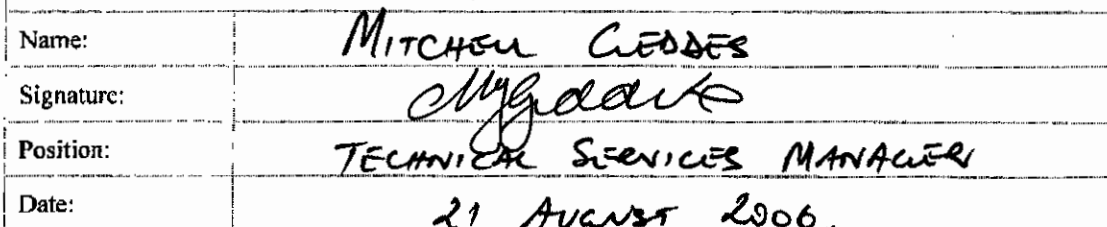 Name: MITCHELL GEDDES
Signature:
Position: TECHNICAL SERVICES MANAGER
Date: 21 AUGUST 2006.